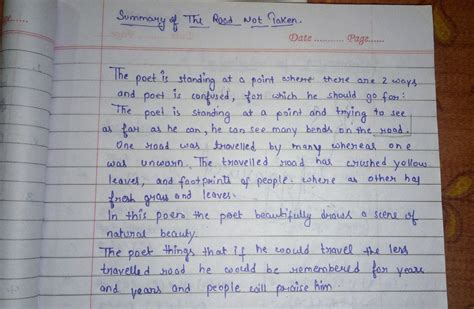 Summary of The Road Not Taken.
Date ............ Page......
The poet is standing at a point where there are 2 ways
and poet is confused, for which he should go for:
The poet is standing at a point and trying to see
as far as he can, he can see many bends on the road.
One road was travelled by many whereas one
was unworn. The travelled road has crushed yellow
leaves, and footprints of people. where as other has
fresh grass and leaves.
In this poem the poet beautifully draws a scene of
natural beauty.
The poet things that if he would travel the less
travelled road he would be remembered for years
and years and people will praise him.